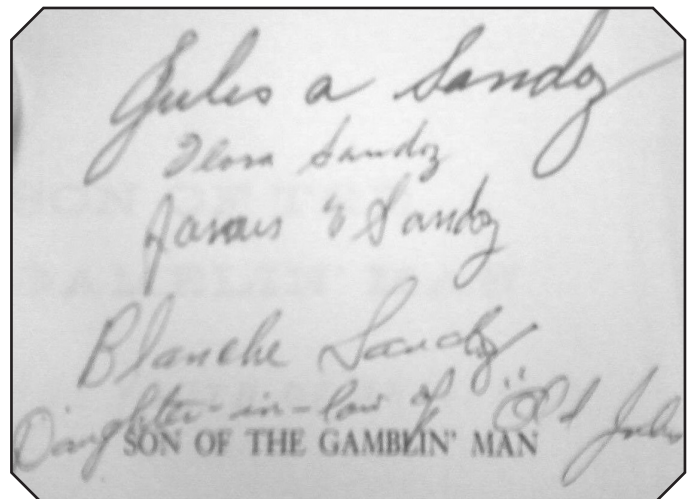 Jules a Sandoz
Flora Sandoz
James E Sandoz
Blanche Sandoz
Daughter-in-law of "Old Jules
SON OF THE GAMBLIN' MAN